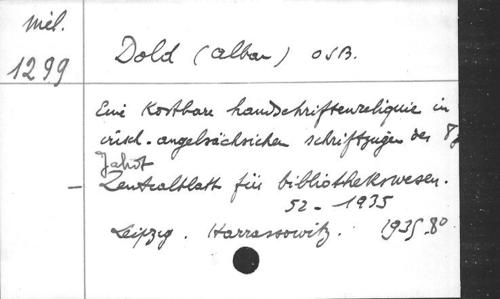 Mél.
1299
Dold (Alban) OSB.
Eine Kostbare handschriftenreliquie in
irisch-angelsächsicher schriftzügen des 8
Jahrt
- Zentralblatt für bibliothekswesen.
52 - 1935
Leipzig. Harrassowitz. 1935. 80